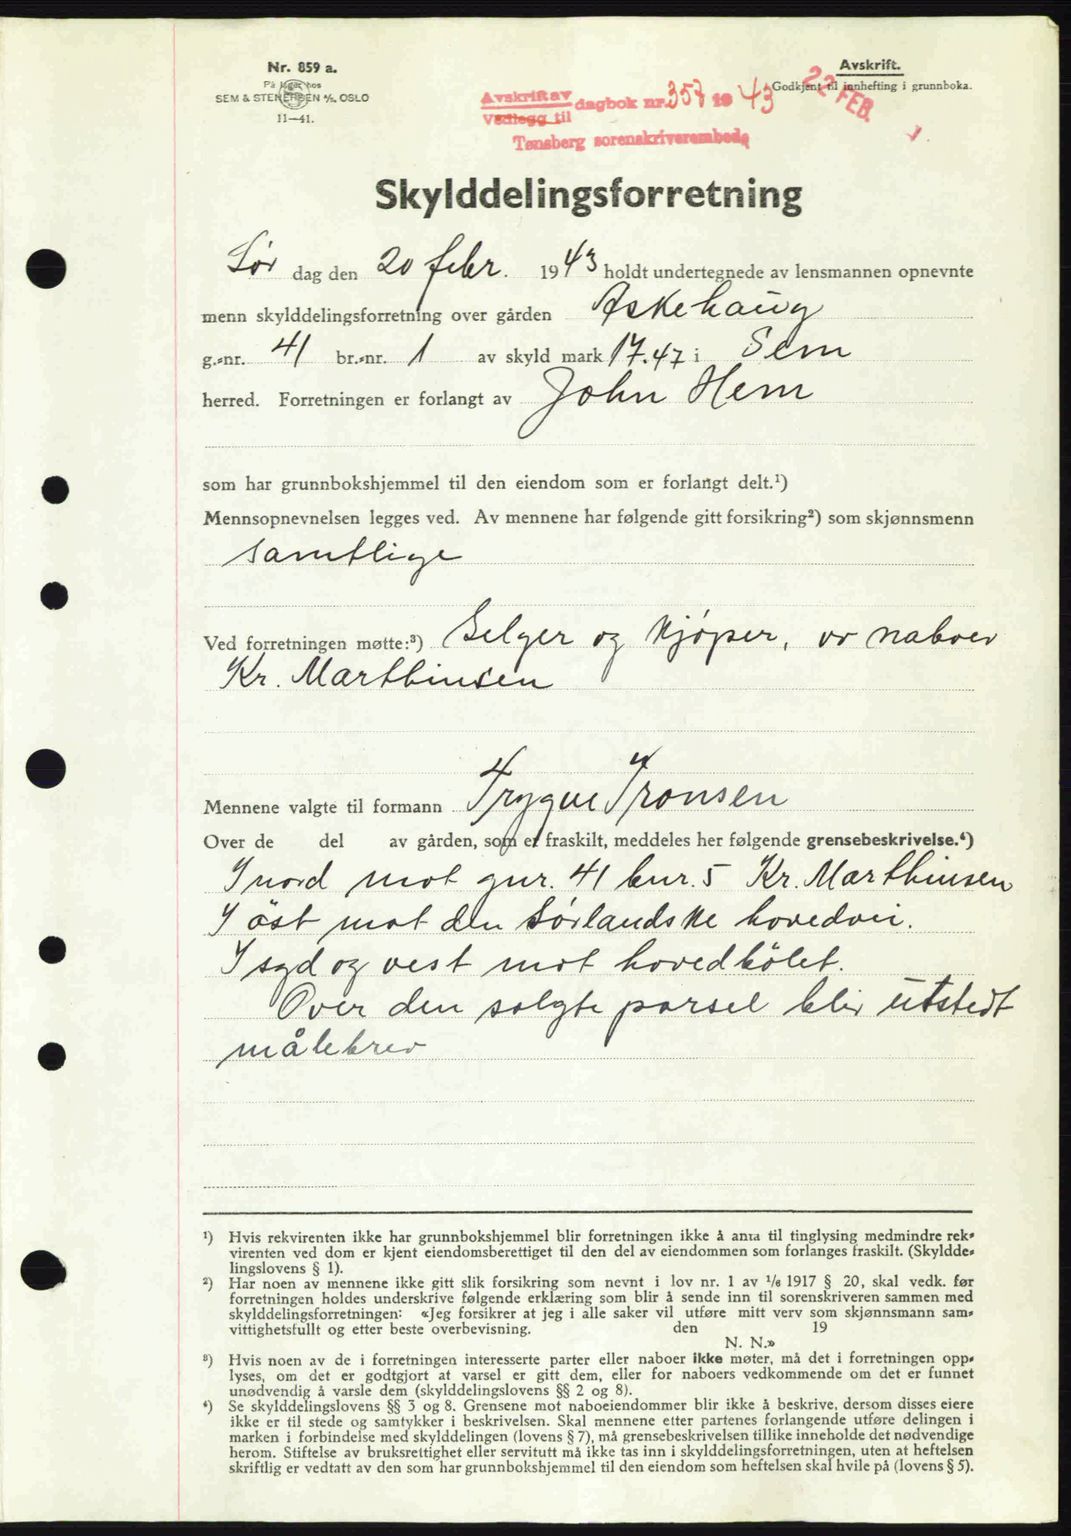 Nr. 859 a.
På lager hos
SEM & STENERSEN A/S. OSLO
11—41.
Avskrift.
Godkjent til innhefting i grunnboka.
22 FEB.
Avskrift av
Vedlegg til
dagbok nr. 357 19 43
Tønsberg sorenskriverembede
Skylddelingsforretning
Lør dag den 20 febr. 1943 holdt undertegnede av lensmannen opnevnte
menn skylddelingsforretning over gården Askehaug
g.-nr. 41 br.-nr. 1 av skyld mark 17.47 i Sem
herred. Forretningen er forlangt av John Hem
som har grunnbokshjemmel til den eiendom som er forlangt delt.¹)
Mennsopnevnelsen legges ved. Av mennene har følgende gitt forsikring²) som skjønnsmenn
samtlige
Ved forretningen møtte:³) Selger og kjøper, ov naboer
Kr. Marthinsen
Mennene valgte til formann Trygve Tronsen
Over de del av gården, som er fraskilt, meddeles her følgende grensebeskrivelse.⁴)
I nord mot gnr. 41 bnr. 5 Kr. Marthinsen
I øst mot den Sørlandske hovedvei.
I syd og vest mot hovedbølet.
Over den solgte parsel blir utstedt
målebrev
¹) Hvis rekvirenten ikke har grunnbokshjemmel blir forretningen ikke å anta til tinglysing medmindre rek-
virenten ved dom er kjent eiendomsberettiget til den del av eiendommen som forlanges fraskilt. (Skyldde-
lingslovens § 1).
²) Har noen av mennene ikke gitt slik forsikring som nevnt i lov nr. 1 av ¹/₆ 1917 § 20, skal vedk. før
forretningen holdes underskrive følgende erklæring som blir å sende inn til sorenskriveren sammen med
skylddelingsforretningen: «Jeg forsikrer at jeg i alle saker vil utføre mitt verv som skjønnsmann sam-
vittighetsfullt og etter beste overbevisning. den 19
N. N.»
³) Hvis noen av de i forretningen interesserte parter eller naboer ikke møter, må det i forretningen opp-
lyses, om det er godtgjort at varsel er gitt dem, eller for naboers vedkommende om det er funnet
unødvendig å varsle dem (skylddelingslovens §§ 2 og 8).
⁴) Se skylddelingslovens §§ 3 og 8. Grensene mot naboeiendommer blir ikke å beskrive, dersom disses eiere
ikke er til stede og samtykker i beskrivelsen. Skal mennene etter partenes forlangende utføre delingen i
marken i forbindelse med skylddelingen (lovens § 7), må grensebeskrivelsen tillike inneholde det nødvendige
herom. Stiftelse av bruksrettighet eller servitutt må ikke tas inn i skylddelingsforretningen, uten at heftelsen
skriftlig er vedtatt av den som har grunnbokshjemmel til den eiendom som heftelsen skal hvile på (lovens § 5).